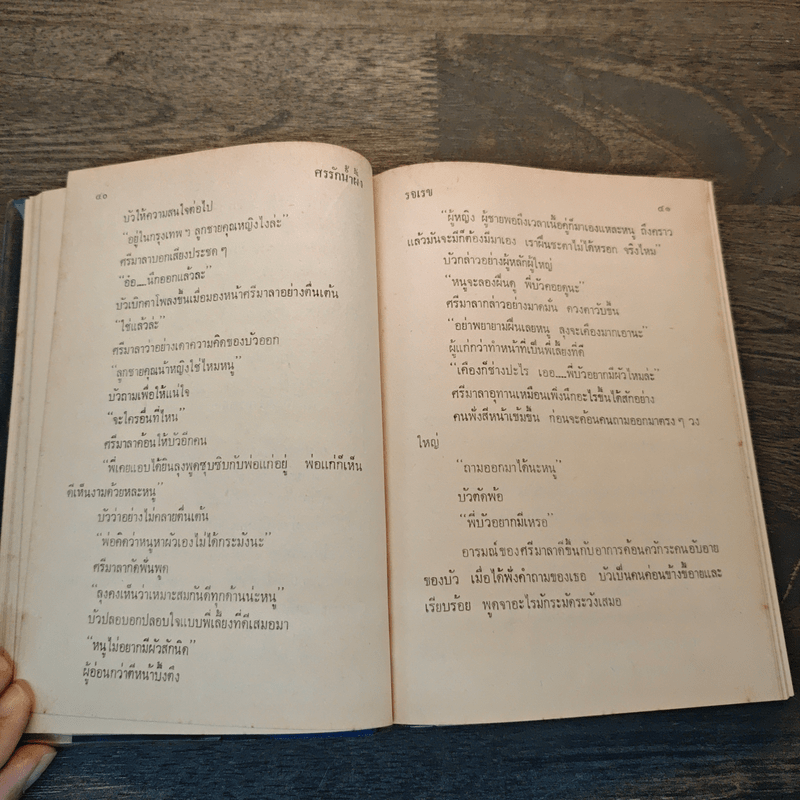 ๔๐
ศรรักน้ำผึ้ง
บัวให้ความสนใจต่อไป
“อยู่ในกรุงเทพ ฯ ลูกชายคุณหญิงไงล่ะ”
ศรีมาลาบอกเสียงประชด ๆ
“อ๋อ.....นึกออกแล้วละ”
บัวเบิกตาโพลงขึ้นเมื่อมองหน้าศรีมาลาอย่างตื่นเต้น
“ใช่แล้วล่ะ”
ศรีมาลาว่าอย่างเดาความคิดของบัวออก
“ลูกชายคุณน้าหญิงใช่ไหมหนู”
บัวถามเพื่อให้แน่ใจ
“จะใครอื่นที่ไหน”
ศรีมาลาค้อนให้บัวอีกคน
“พี่เคยแอบได้ยินลุงพูดซุบซิบกับพ่อแก่อยู่ พ่อแก่ก็เห็น
ดีเห็นงามด้วยหละหนู”
บัวว่าอย่างไม่คลายตื่นเต้น
“พ่อคิดว่าหนูหาผัวเองไม่ได้กระมังนะ”
ศรีมาลากัดฟันพูด
“ลุงคงเห็นว่าเหมาะสมกันดีทุกด้านน่ะหนู”
บัวปลอบอกปลอบใจแบบพี่เลี้ยงที่ดีเสมอมา
“หนูไม่อยากมีผัวสักนิด”
ผู้อ่อนกว่าตีหน้าบึ้งตึง
รจเรข
๔๑
“ผู้หญิง ผู้ชายพอถึงเวลาเนื้อคู่ก็มาเองแหละหนู ถึงคราว
แล้วมันจะมีก็ต้องมีมาเอง เราฝืนชะตาไม่ได้หรอก จริงไหม”
บัวกล่าวอย่างผู้หลักผู้ใหญ่
“หนูจะลองฝืนดู พี่บัวคอยดูนะ”
ศรีมาลากล่าวอย่างมาดมั่น ดวงตาวับขึ้น
“อย่าพยายามฝืนเลยหนู ลุงจะเคืองมากเอานะ”
ผู้แก่กว่าทำหน้าที่เป็นพี่เลี้ยงที่ดี
“เคืองก็ช่างปะไร เออ.....พี่บัวอยากมีผัวไหมล่ะ”
ศรีมาลาอุทานเหมือนเพิ่งนึกอะไรขึ้นได้สักอย่าง
คนฟังสีหน้าเข้มขึ้น ก่อนจะค้อนคนถามออกมาตรง ๆ วง
ใหญ่
“ถามออกมาได้นะหนู”
บัวตัดพ้อ
“พี่บัวอยากมีเหรอ”
อารมณ์ของศรีมาลาดีขึ้นกับอาการค้อนควักระคนอับอาย
ของบัว เมื่อได้ฟังคำถามของเธอ บัวเป็นคนค่อนข้างขี้อายและ
เรียบร้อย พูดจาอะไรมักระมัดระวังเสมอ